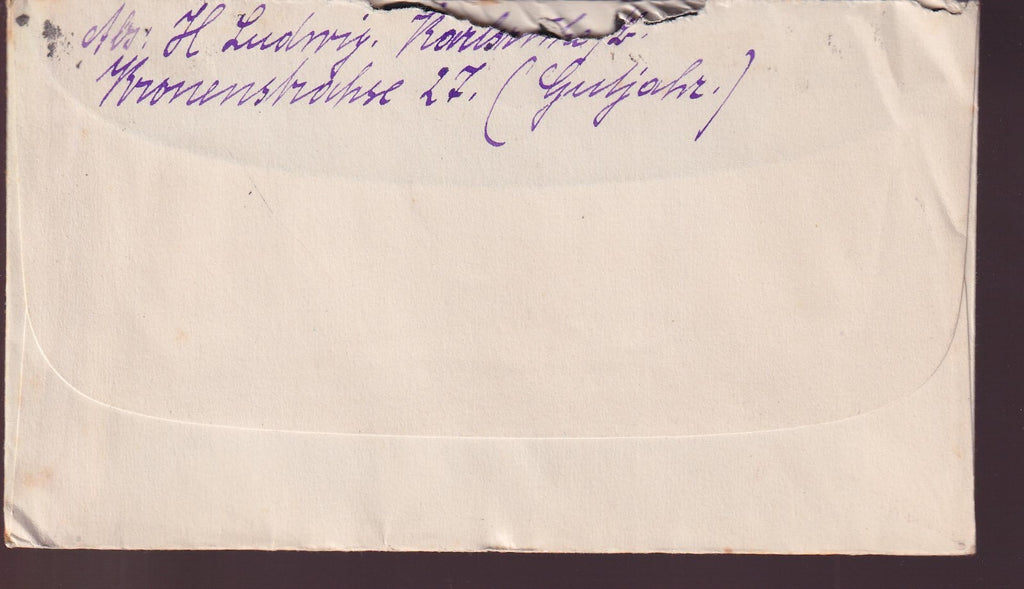 Abs: H Ludwig. Karlsruhe/B.
Kronenstrahse 27. (Gutjahr.)